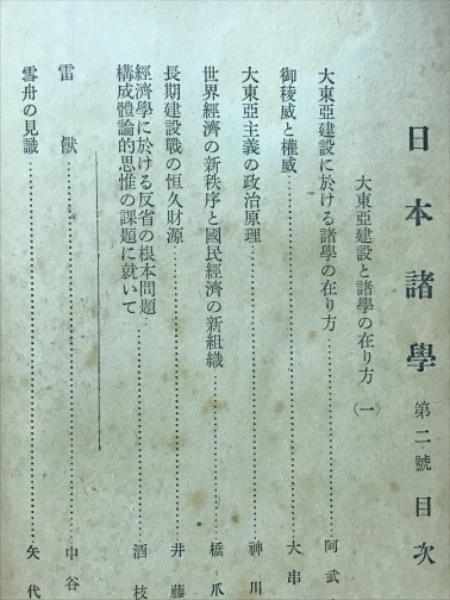 日本諸學 第二號 目次
大東亞建設と諸學の在り方 (一)
大東亞建設に於ける諸學の在り方 阿武
御稜威と權威 大串
大東亞主義の政治原理 神川
世界經濟の新秩序と國民經濟の新組織 橋爪
長期建設戰の恒久財源 井藤
經濟學に於ける反省の根本問題
構成體論的思惟の課題に就いて 酒枝
雷獸 中谷
雪舟の見識 矢代